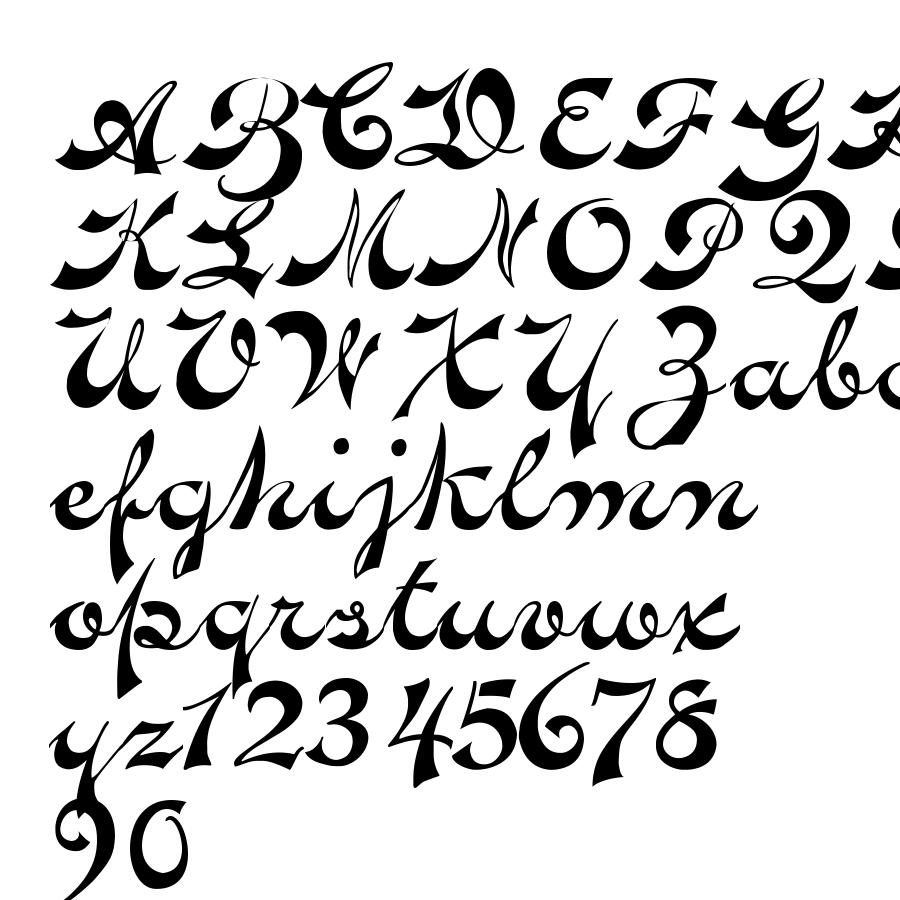 ABCDEFG
KLMNOPQ
UVWXYZab
efghijklmn
opqrstuvwx
yz12345678
90